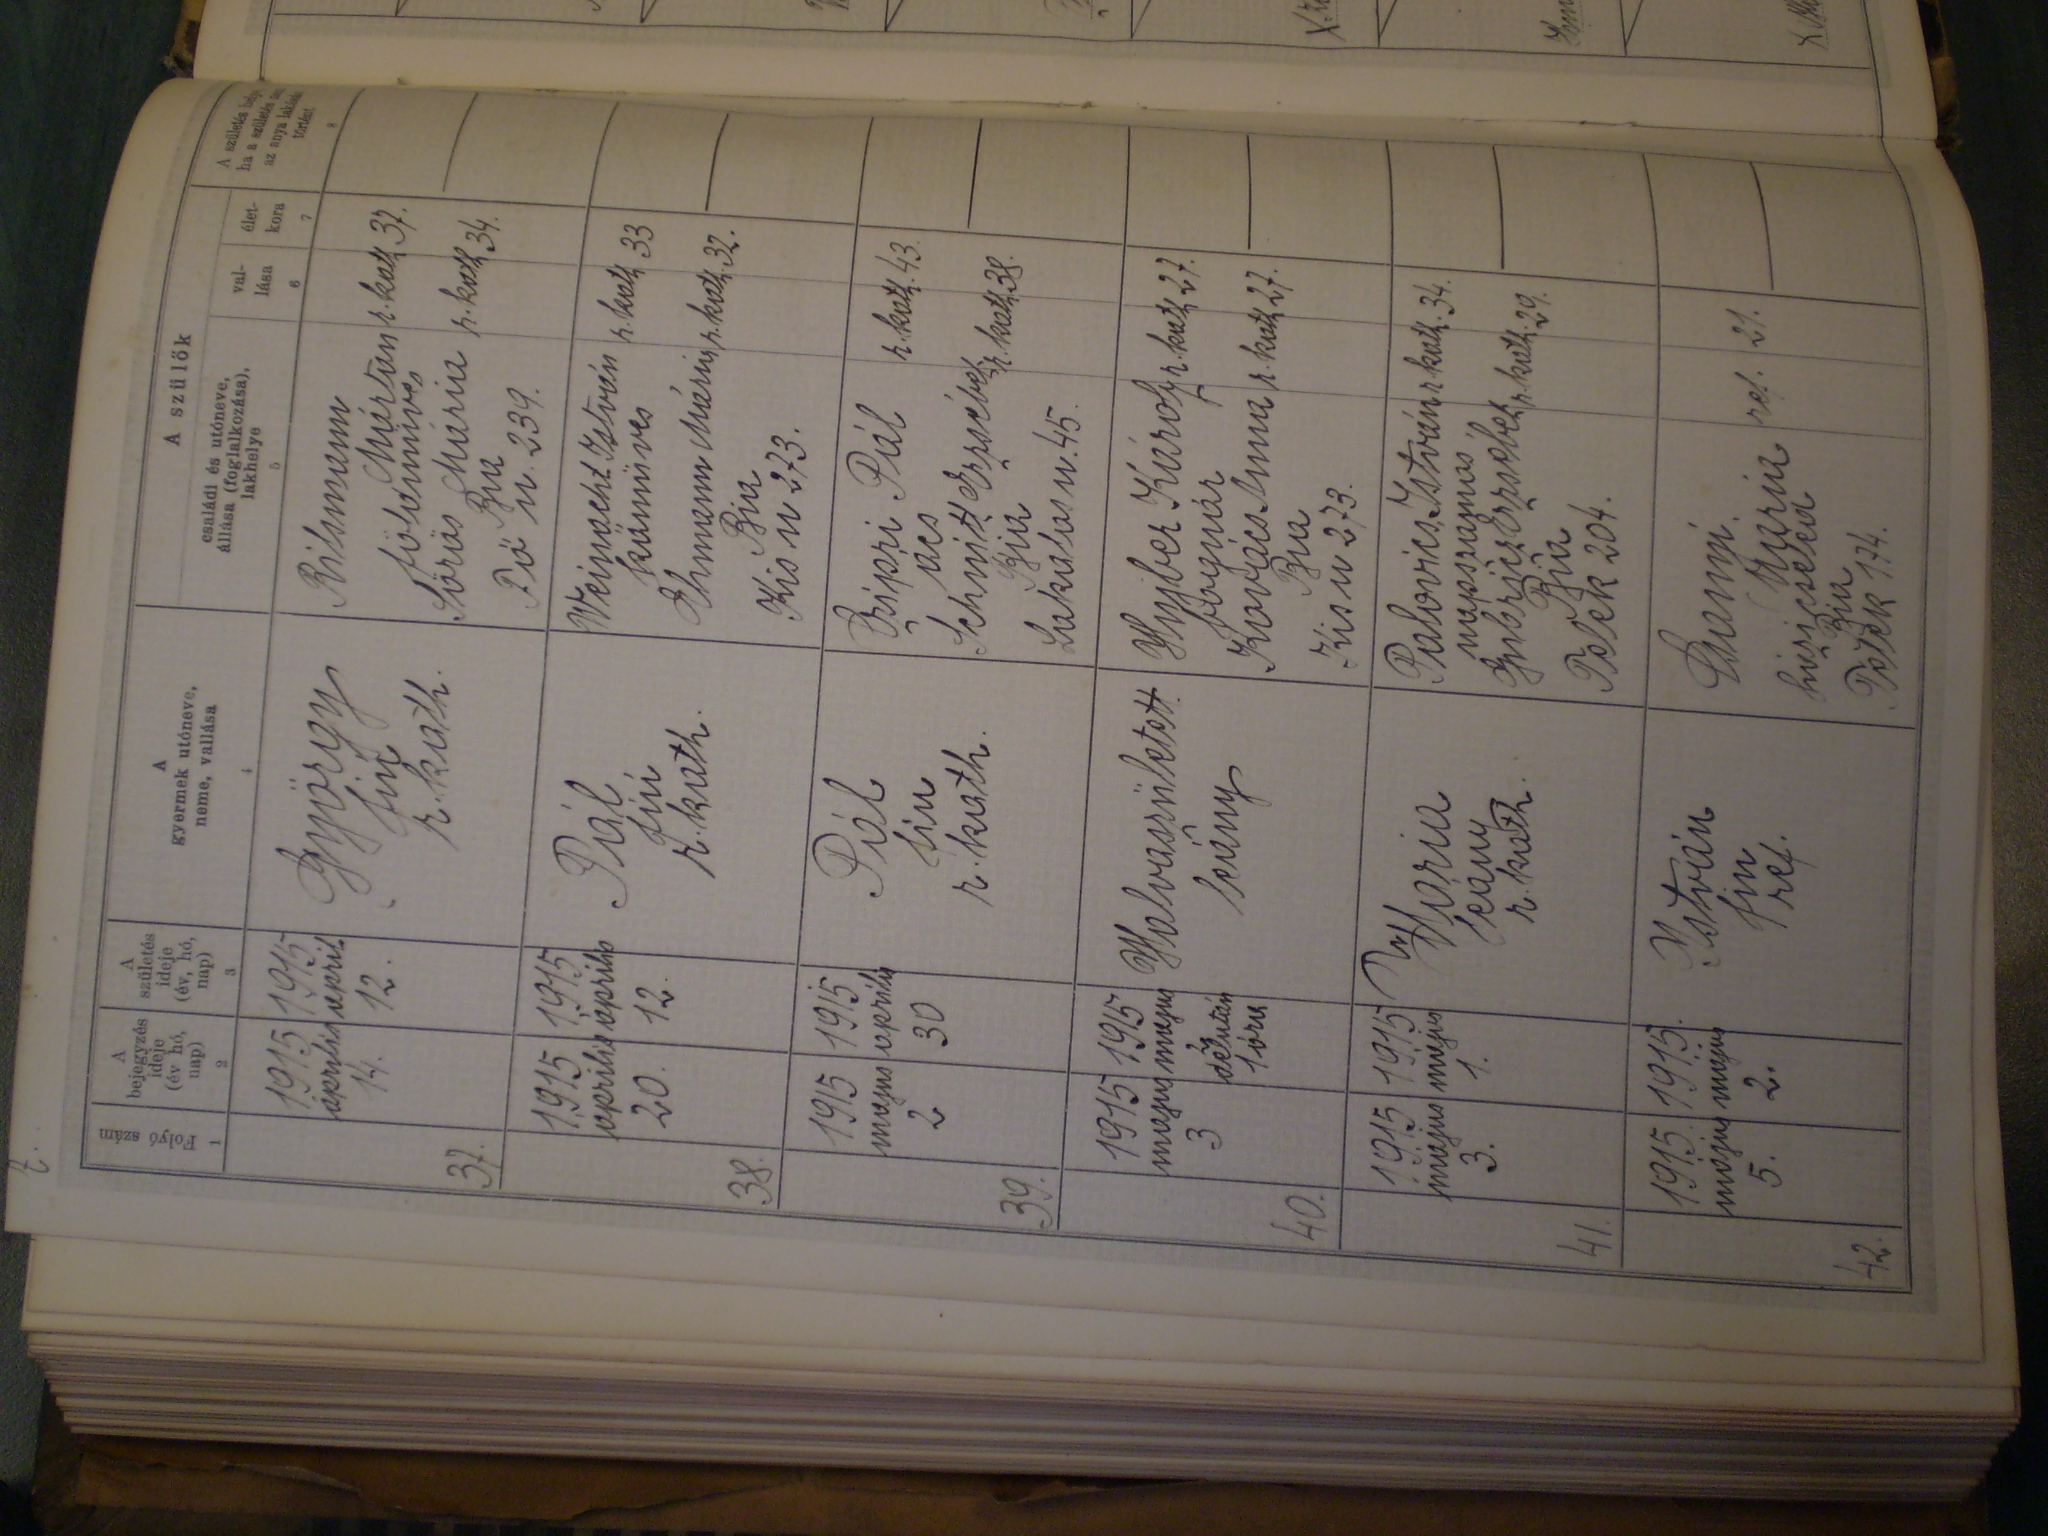 7.
Folyó szám
A bejegyzés ideje (év hó, nap)
A születés ideje (év, hó, nap)
A gyermek utóneve, neme, vallása
A szülők
családi és utóneve, állása (foglalkozása), lakhelye
val-lása
élet-kora
A születés helye
ha a születés
az anya
történt
1
2
3
4
5
6
7
8
37.
1915
április
14.
1915
április
12.
György
fiú
r. kath.
Márton
földmives
r. kath 37.
Sörös Mária
r. kath 34.
Bia
Fő u. 239.
38.
1915
április
20.
1915
április
12.
Pál
fiú
r. kath.
István
kőműves
r. kath 33
Ehmann Mária
r. kath 32.
Bia
Kis u 273.
39.
1915
majus
2
1915
április
30
Pál
fiu
r. kath.
Pál
ács
r. kath. 43.
Schmitt Erzsébet
r. kath 38.
Bia
u. 45.
40.
1915
majus
3
1915
majus
3
délután
1 óra
Halvaszületett
leány
Hujber Károly
bognár
r. kath 27.
Kovács Anna
r. kath 27.
Bia
Kis u 273.
41.
1915
majus
3.
1915
majus
1.
Mária
leány
r. kath.
Palovics István
napszamos
r. kath. 34.
Erzsébet
r. kath. 29.
Bia
Petek 204.
42.
1915.
majus
5.
1915.
majus
2.
István
fiu
ref.
Mária
házi cseléd
ref. 21.
Bia
Petek 174.